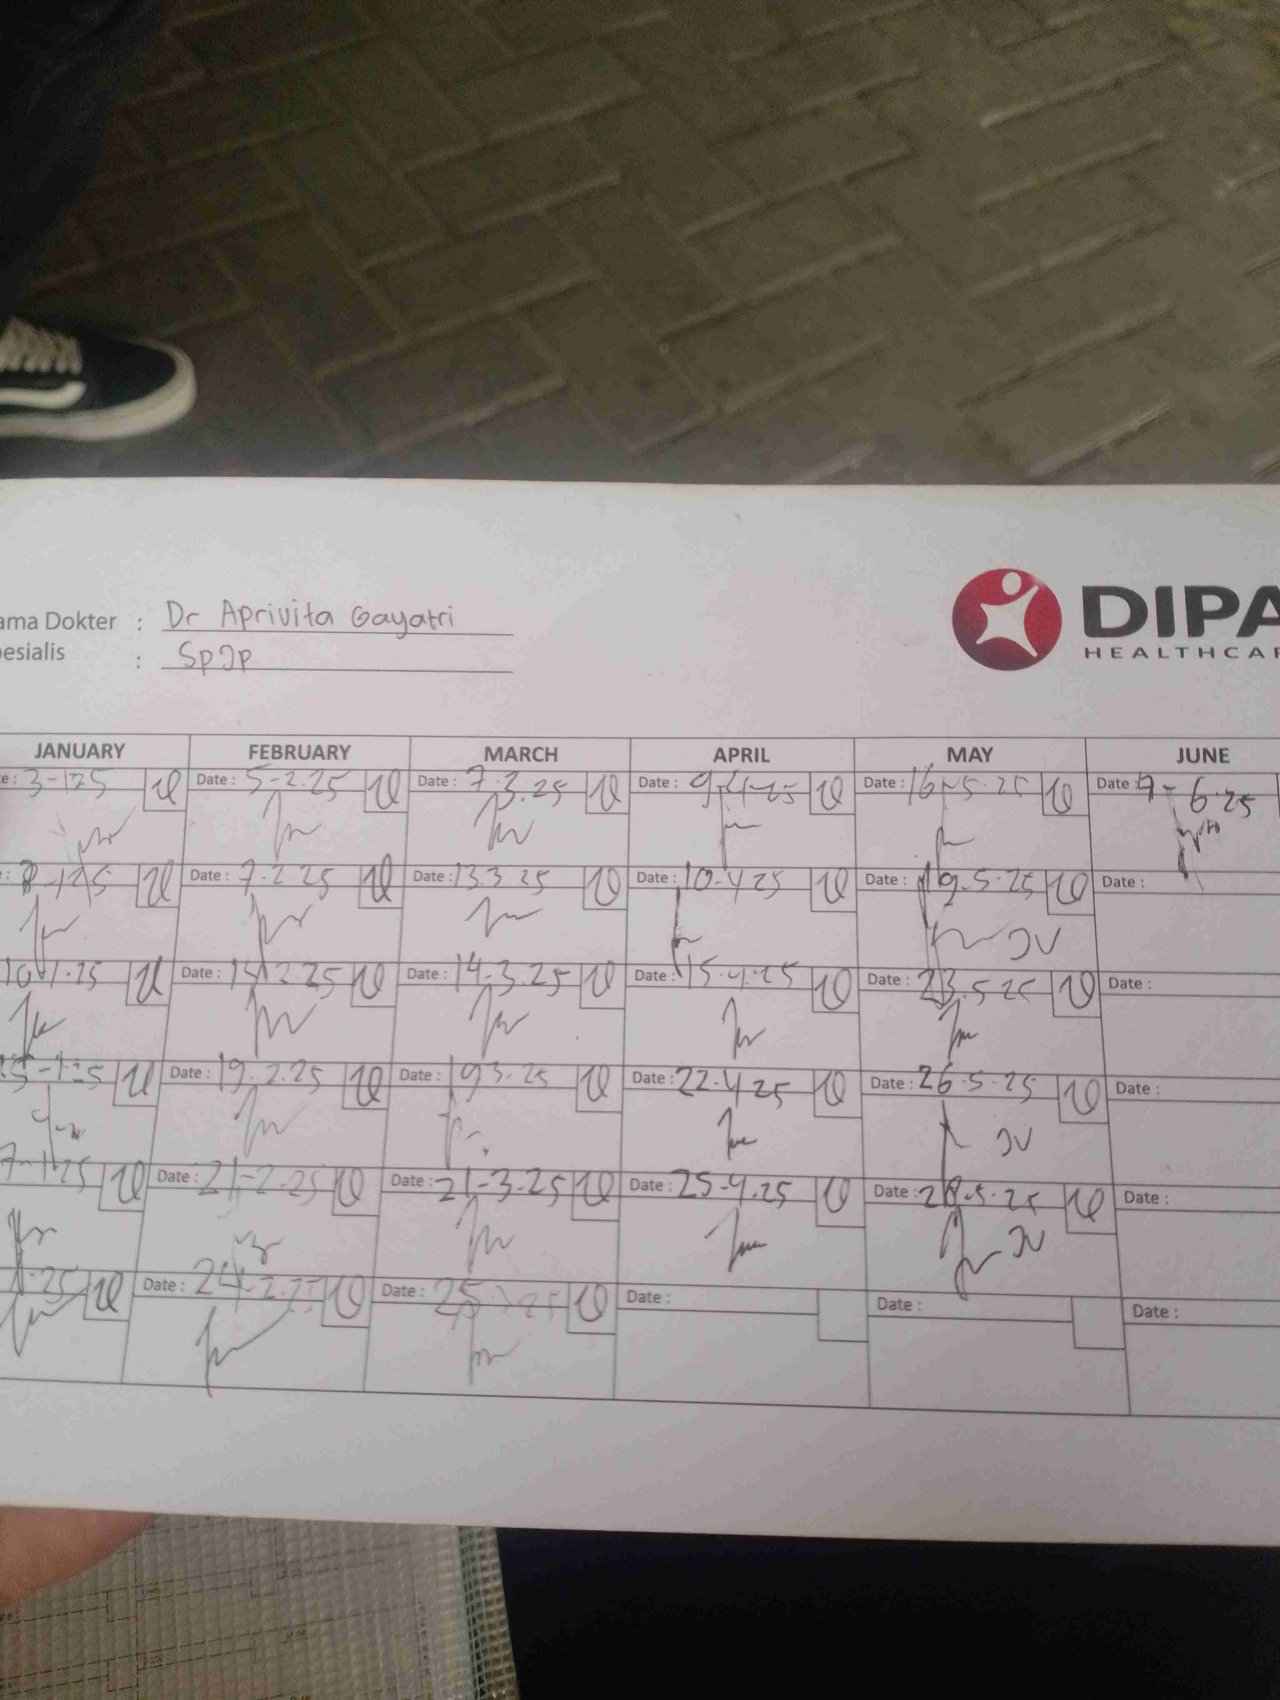 ama Dokter : Dr Aprivita Gayatri
esialis : SpJp
DIPA
HEALTHCAR
JANUARY FEBRUARY MARCH APRIL MAY JUNE
e: 3-1-25 Date: 5-2.25 Date: 7.3.25 Date: 9-4-25 Date: 16-5.25 Date: 9-6.25
Date: 7.2.25 Date: 13 3 25 Date: 10-4.25 Date: 19.5.25 Date:
10-1.25 Date: Date: 14-3.25 Date: 15.4.25 Date: 23.5 25 Date:
Date: 19.2.25 Date: 19 3.25 Date: 22.4 25 Date: 26.5.25 Date:
Date: 21-2.25 Date: 21-3.25 Date: 25-4.25 Date: 28.5.25 Date:
Date: 24-2.25 Date: 25 Date: Date: Date: